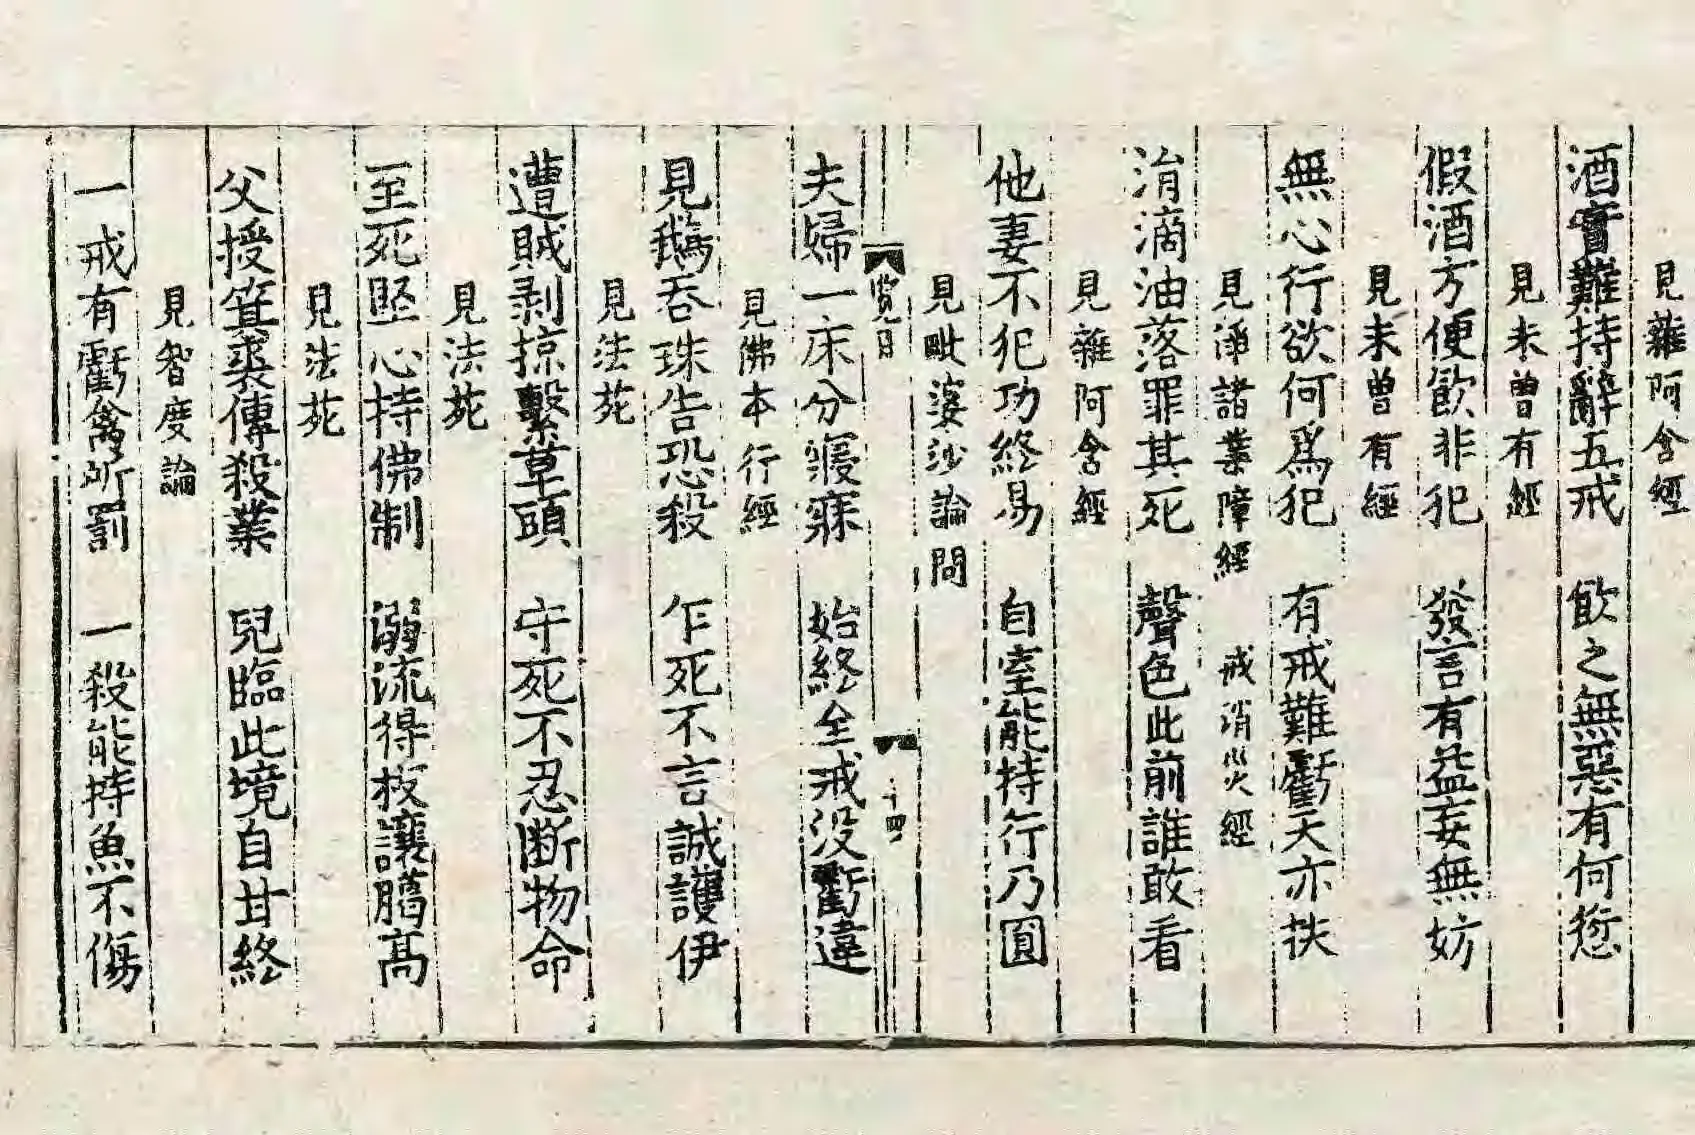 見雜阿含經
酒實難持辭五戒　飲之無惡有何愆
見未曾有經
假酒方便飲非犯　發言有益妄無妨
見未曾有經
無心行欲何爲犯　有戒難虧天亦扶
見淨諸業障經　戒消災經
涓滴油落罪其死　聲色此前誰敢看
見雜阿含經
他妻不犯功終易　自室能持行乃圓
見毗婆沙論問
覽日　十四
夫婦一床分寢寐　始終全戒没虧違
見佛本行經
見鵝吞珠告恐殺　乍死不言誠護伊
見法苑
遭賊剥掠繫草頭　守死不忍斷物命
見法苑
至死堅心持佛制　溺流得板讓﨟高
見法苑
父授箕裘傳殺業　兒臨此境自甘終
見智度論
一戒有虧禽所罰　一殺能持魚不傷